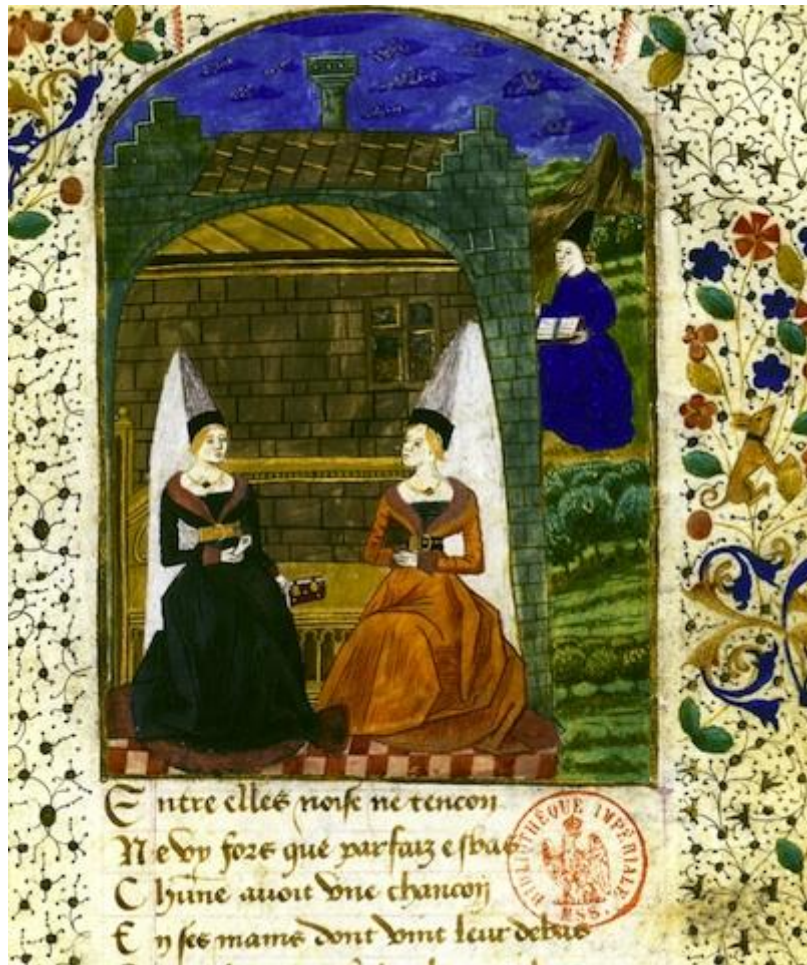 Entre elles noise ne tencon
Ne vy fors que parfaiz esbas
Chune avoit une chancon
En ses mains dont vint leur debas
BIBLIOTHÈQUE IMPÉRIALE
MSS.